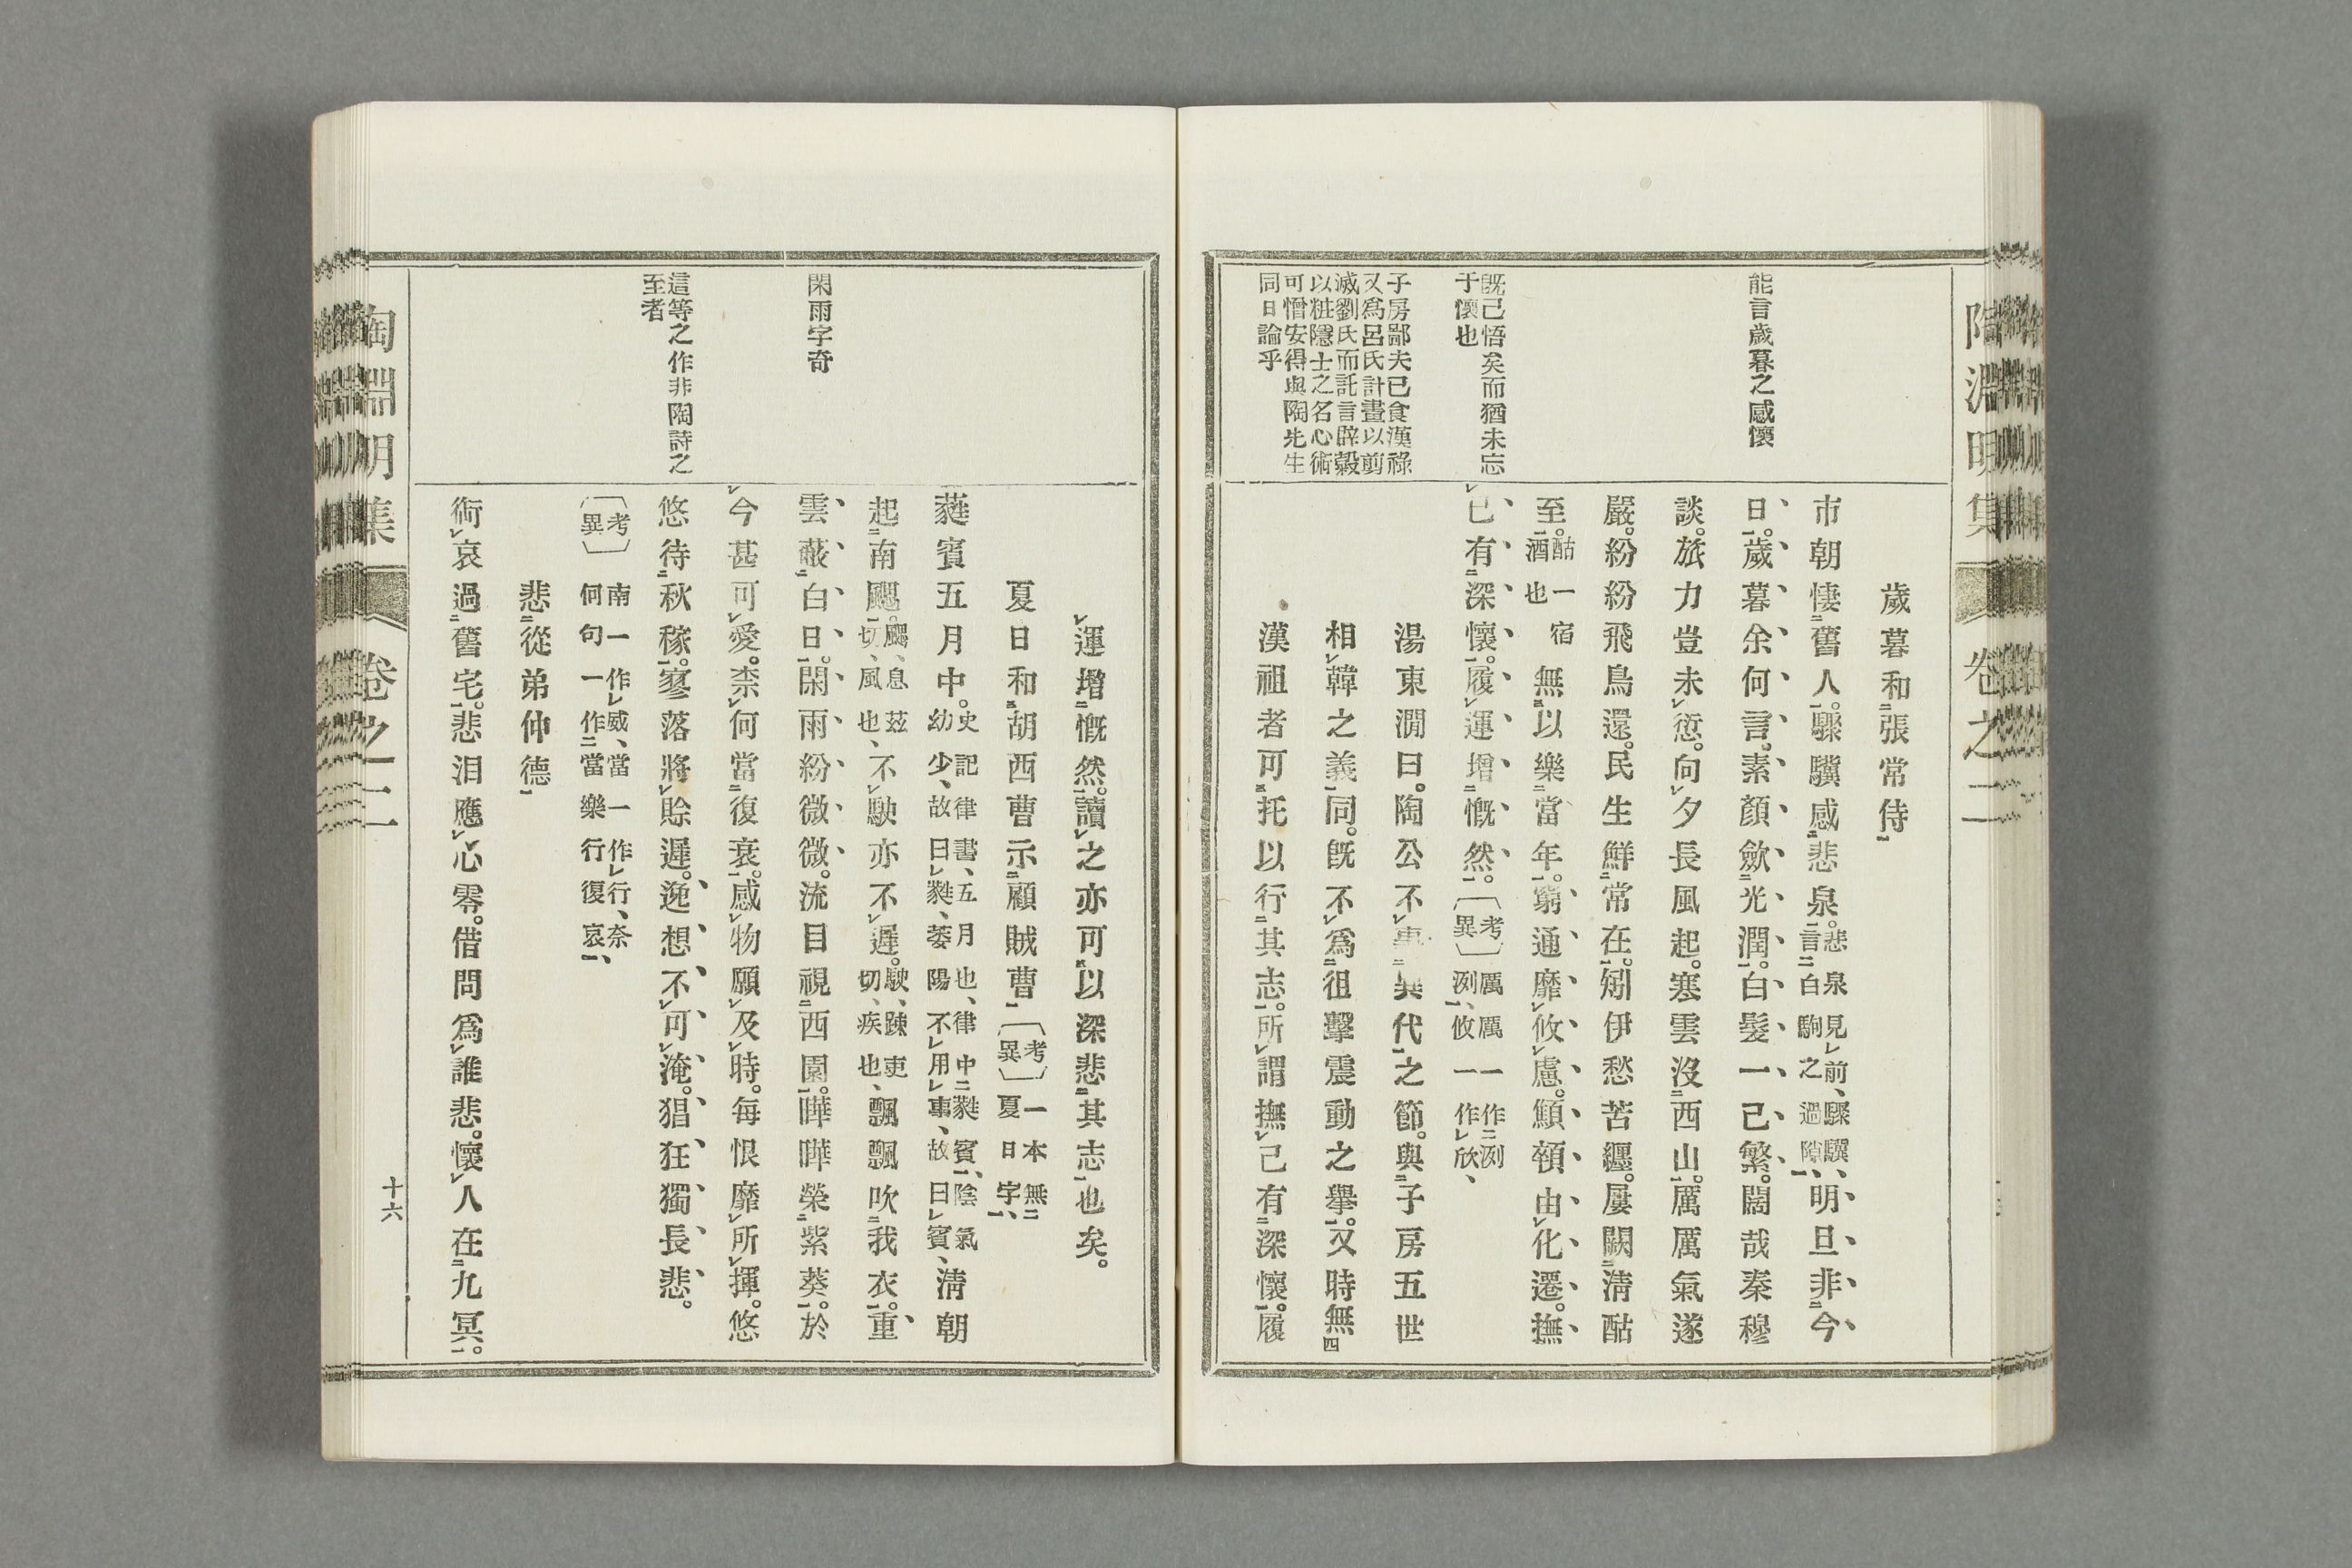 陶淵明集 卷之二
能言歲暮之感懷
既已悟矣而猶未忘
于懷也
子房鄙夫已食漢祿
又爲呂氏計畫以剪
滅劉氏而託言辟穀
以粧隱士之名心術
可憎安得與陶先生
同日論乎
歲暮和張常侍
市朝悽舊人。驟驥感悲泉。悲泉見前、驟驥、言白駒之過隙、明旦非今
日。歲暮余何言。素顏歛光潤。白髮一已繁。闊哉秦穆
談。旅力豈未愆。向夕長風起。寒雲沒西山。厲厲氣遂
嚴。紛紛飛鳥還。民生鮮常在。矧伊愁苦纏。屢闕淸酤
至。酤一宿酒也無以樂當年。窮通靡攸慮。顦顇由化遷。撫
已有深懷。履運增慨然。〔考異〕厲厲一作洌洌、攸一作欣、
湯東澗曰。陶公不事異代之節。與子房五世
相韓之義同。既不爲徂擊震動之擧。又時無
漢祖者可托以行其志。所謂撫己有深懷。履
運增慨然。讀之亦可以深悲其志也矣。
夏日和胡西曹示顧賊曹〔考異〕一本無夏日字、
蕤賓五月中。史記律書、五月也、律中蕤賓、陰氣幼少、故曰蕤、萎陽不用事、故曰賓、淸朝
起南颸。颸、息茲切、風也、不駛亦不遲。駛、踈吏切、疾也、飄飄吹我衣。重
雲蔽白日。閑雨紛微微。流目視西園。曄曄榮紫葵。於
今甚可愛。柰何當復衰。感物願及時。每恨靡所揮。悠
悠待秋稼。寥落將賒遲。逸想不可淹。猖狂獨長悲。
〔考異〕南一作威、當一作行、奈何句一作當樂行復哀、
悲從弟仲德
銜哀過舊宅。悲泪應心零。借問爲誰悲。懷人在九冥。
閑雨字奇
這等之作非陶詩之
至者
陶淵明集 卷之二 十六